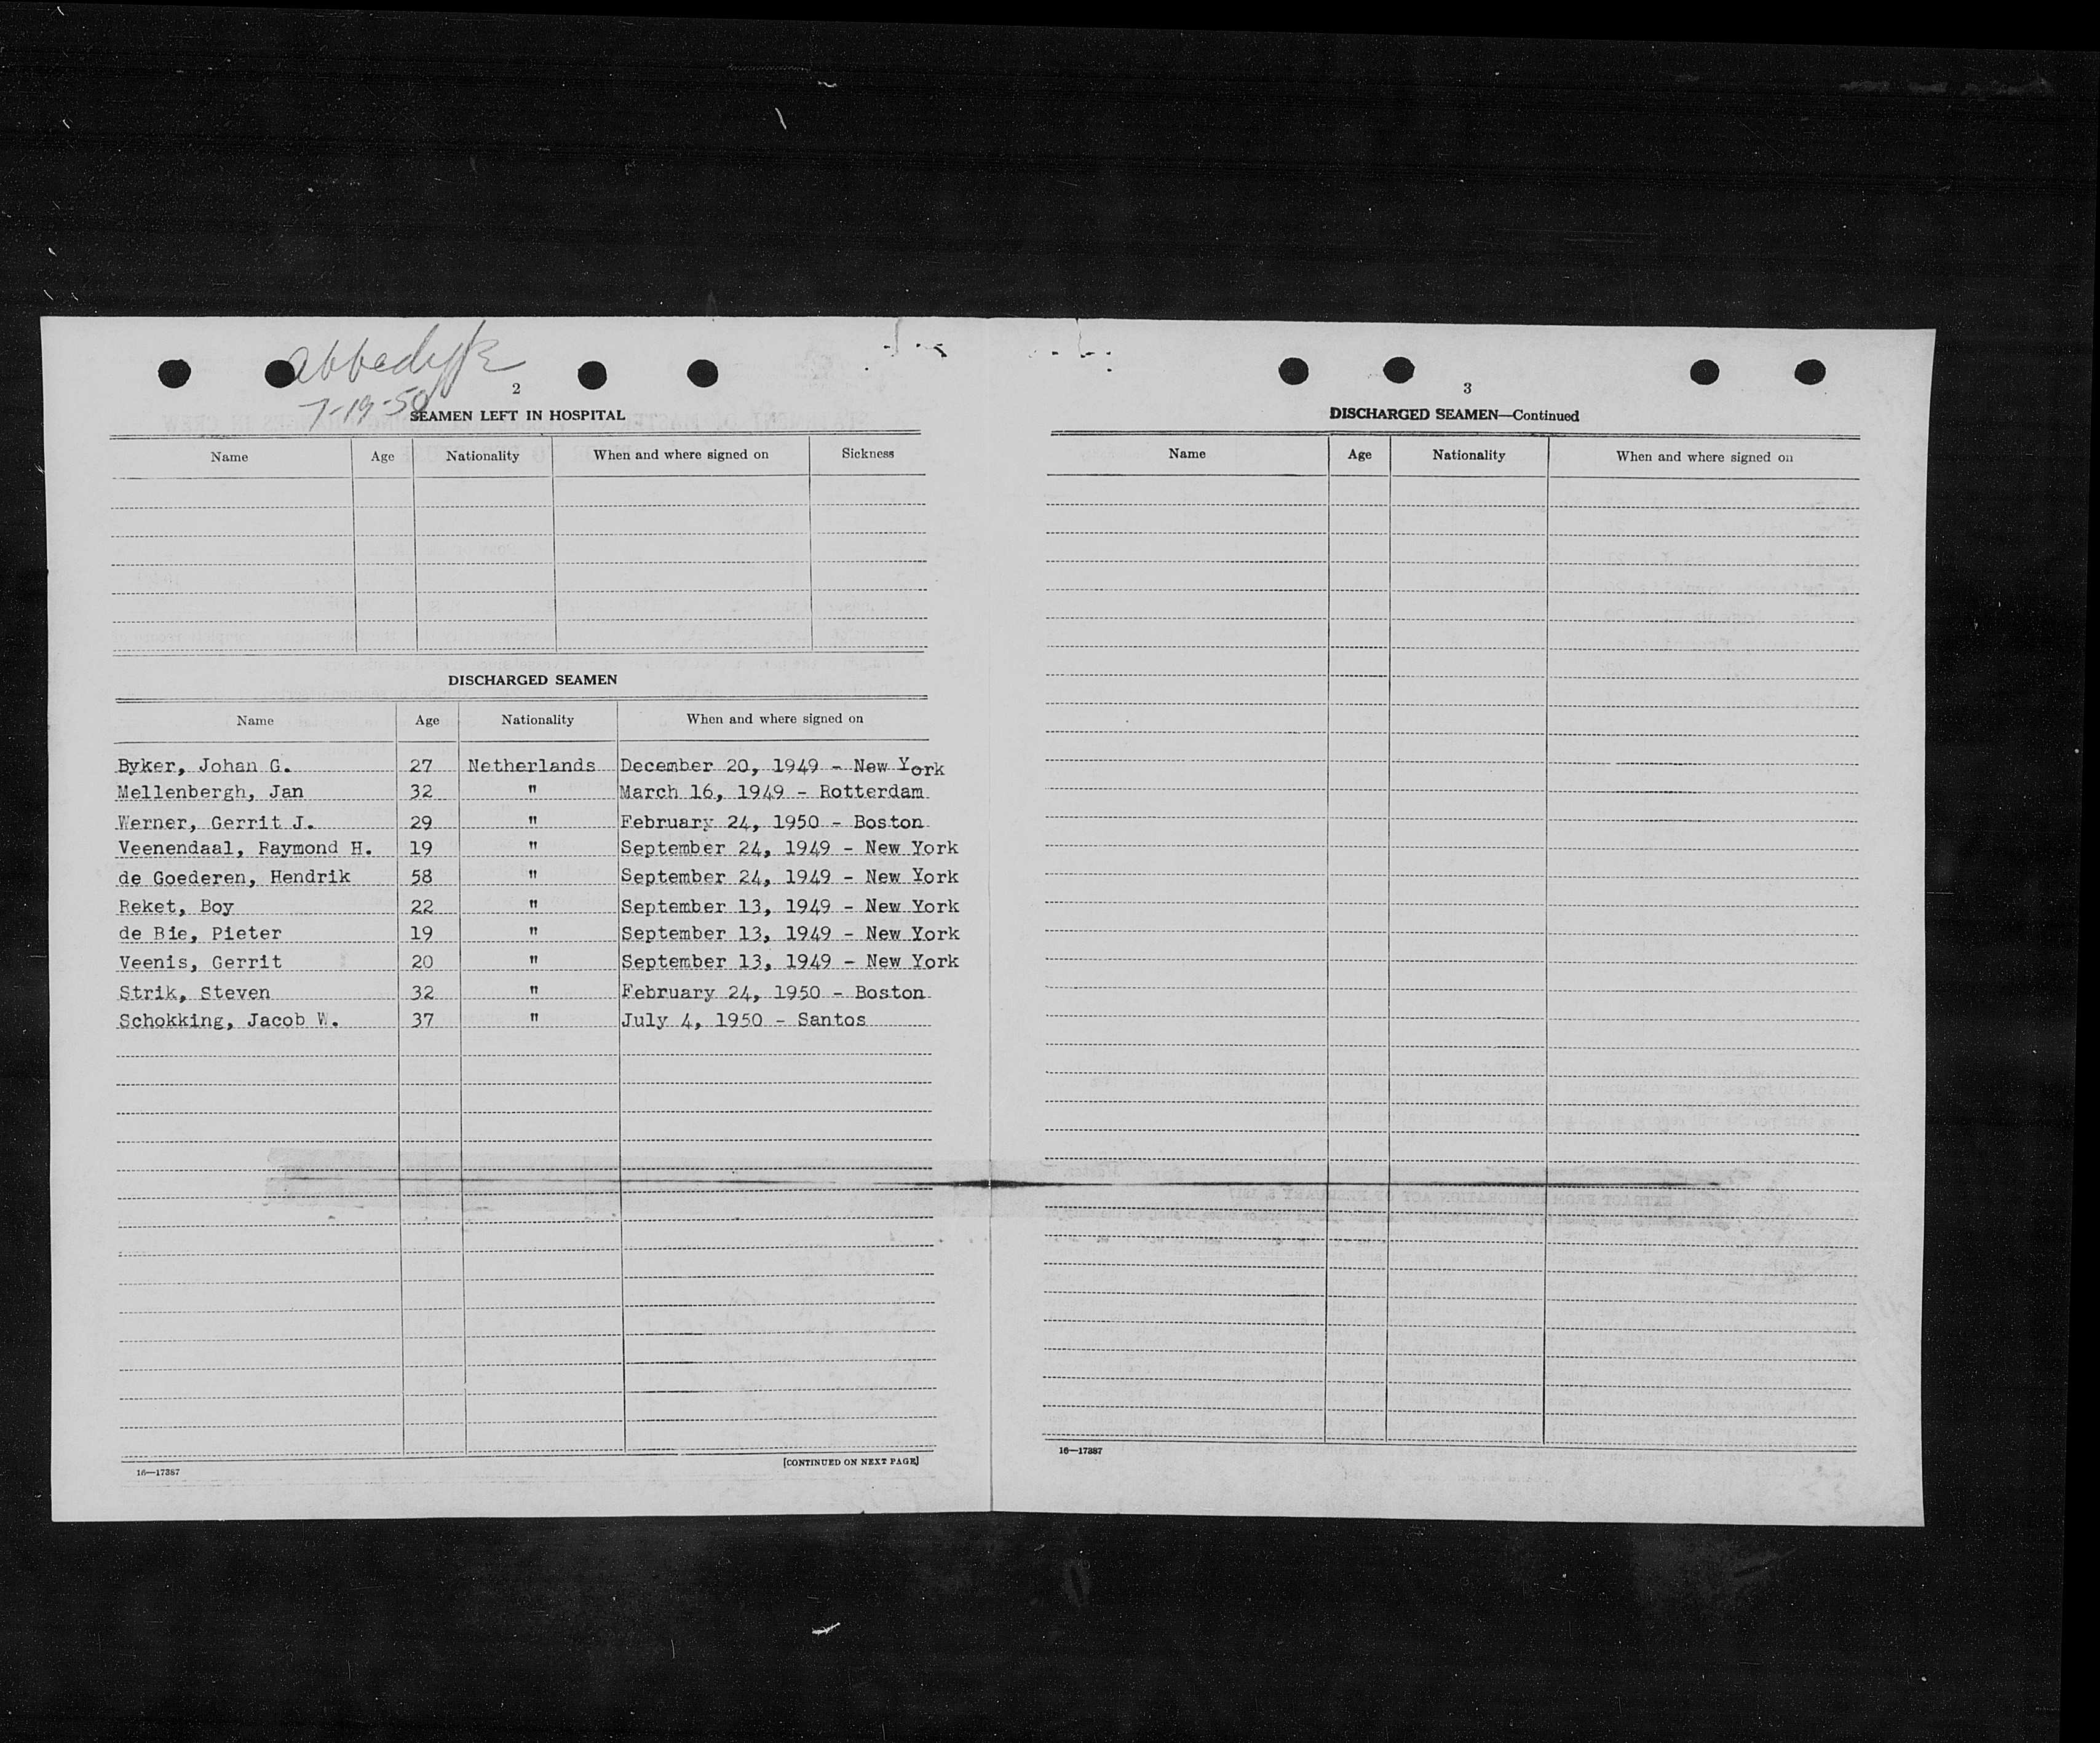 Abbedyk
7-19-50
2
SEAMEN LEFT IN HOSPITAL
Name Age Nationality When and where signed on Sickness
DISCHARGED SEAMEN
Name Age Nationality When and where signed on
Byker, Johan G. 27 Netherlands December 20, 1949 - New York
Mellenbergh, Jan 32 " March 16, 1949 - Rotterdam
Werner, Gerrit J. 29 " February 24, 1950 - Boston
Veenendaal, Raymond H. 19 " September 24, 1949 - New York
de Goederen, Hendrik 58 " September 24, 1949 - New York
Reket, Boy 22 " September 13, 1949 - New York
de Bie, Pieter 19 " September 13, 1949 - New York
Veenis, Gerrit 20 " September 13, 1949 - New York
Strik, Steven 32 " February 24, 1950 - Boston
Schokking, Jacob W. 37 " July 4, 1950 - Santos
16—17387 [CONTINUED ON NEXT PAGE]
3
DISCHARGED SEAMEN—Continued
Name Age Nationality When and where signed on
16—17387